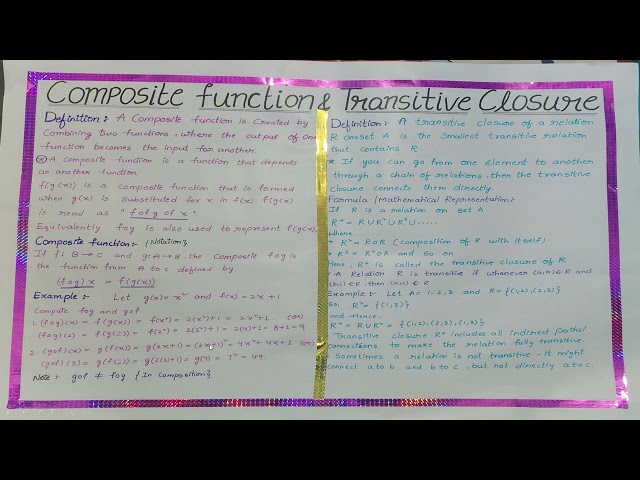 Composite function & Transitive Closure
Definition:- A Composite function is Created by
Combining two functions, where the output of one
function becomes the input for another.
A composite function is a function that depends
on another function.
f(g(x)) is a composite function that is formed
when g(x) is substituted for x in f(x). f(g(x))
is read as "f of g of x".
Equivalently fog is also used to represent f(g(x)).
Composite function:- {Notation}
If f: B→C and g: A→B. the composite fog is
the function from A to C defined by
(fog)x = f(g(x))
Example:- Let g(x)= x² and f(x) = 2x+1
Compute fog and gof
1. (fog)(x) = f(g(x)) = f(x²) = 2(x²)+1 = 2x²+1 (or)
(fog)(2) = f(g(2)) = f(2²) = 2(2²)+1 = 2(4)+1 = 8+1=9
2. (gof)(x) = g(f(x)) = g(2x+1) = (2x+1)² = 4x²+4x+1 (or)
(gof)(3) = g(f(3)) = g(2(3)+1) = g(7) = 7² = 49.
Note:- gof ≠ fog {In Composition}
Definition:- A transitive closure of a relation
R onset A is the Smallest transitive relation
that contains R.
* If you can go from one element to another
through a chain of relations, then the transitive
closure connects them directly.
Formula (Mathematical Representation):
If R is a relation on set A
R⁺ = R U R² U R³ U.....
Where
R² = ROR (Composition of R with itself)
R³ = R²OR and So on
Here, R⁺ is called the transitive closure of R
A Relation R is transitive if whenever (a,b)∈R and
(b,c)∈R, then (a,c)∈R.
Example:- Let A= 1,2,3 and R={(1,2),(2,3)}
So, R²= {(1,3)}
and Hence,
R⁺ = R U R² = {(1,2),(2,3),(1,3)}
Transitive closure R⁺ includes all indirect paths/
connections to make the relation fully transitive.
Sometimes a relation is not transitive - it might
connect a to b and b to c, but not directly a to c.